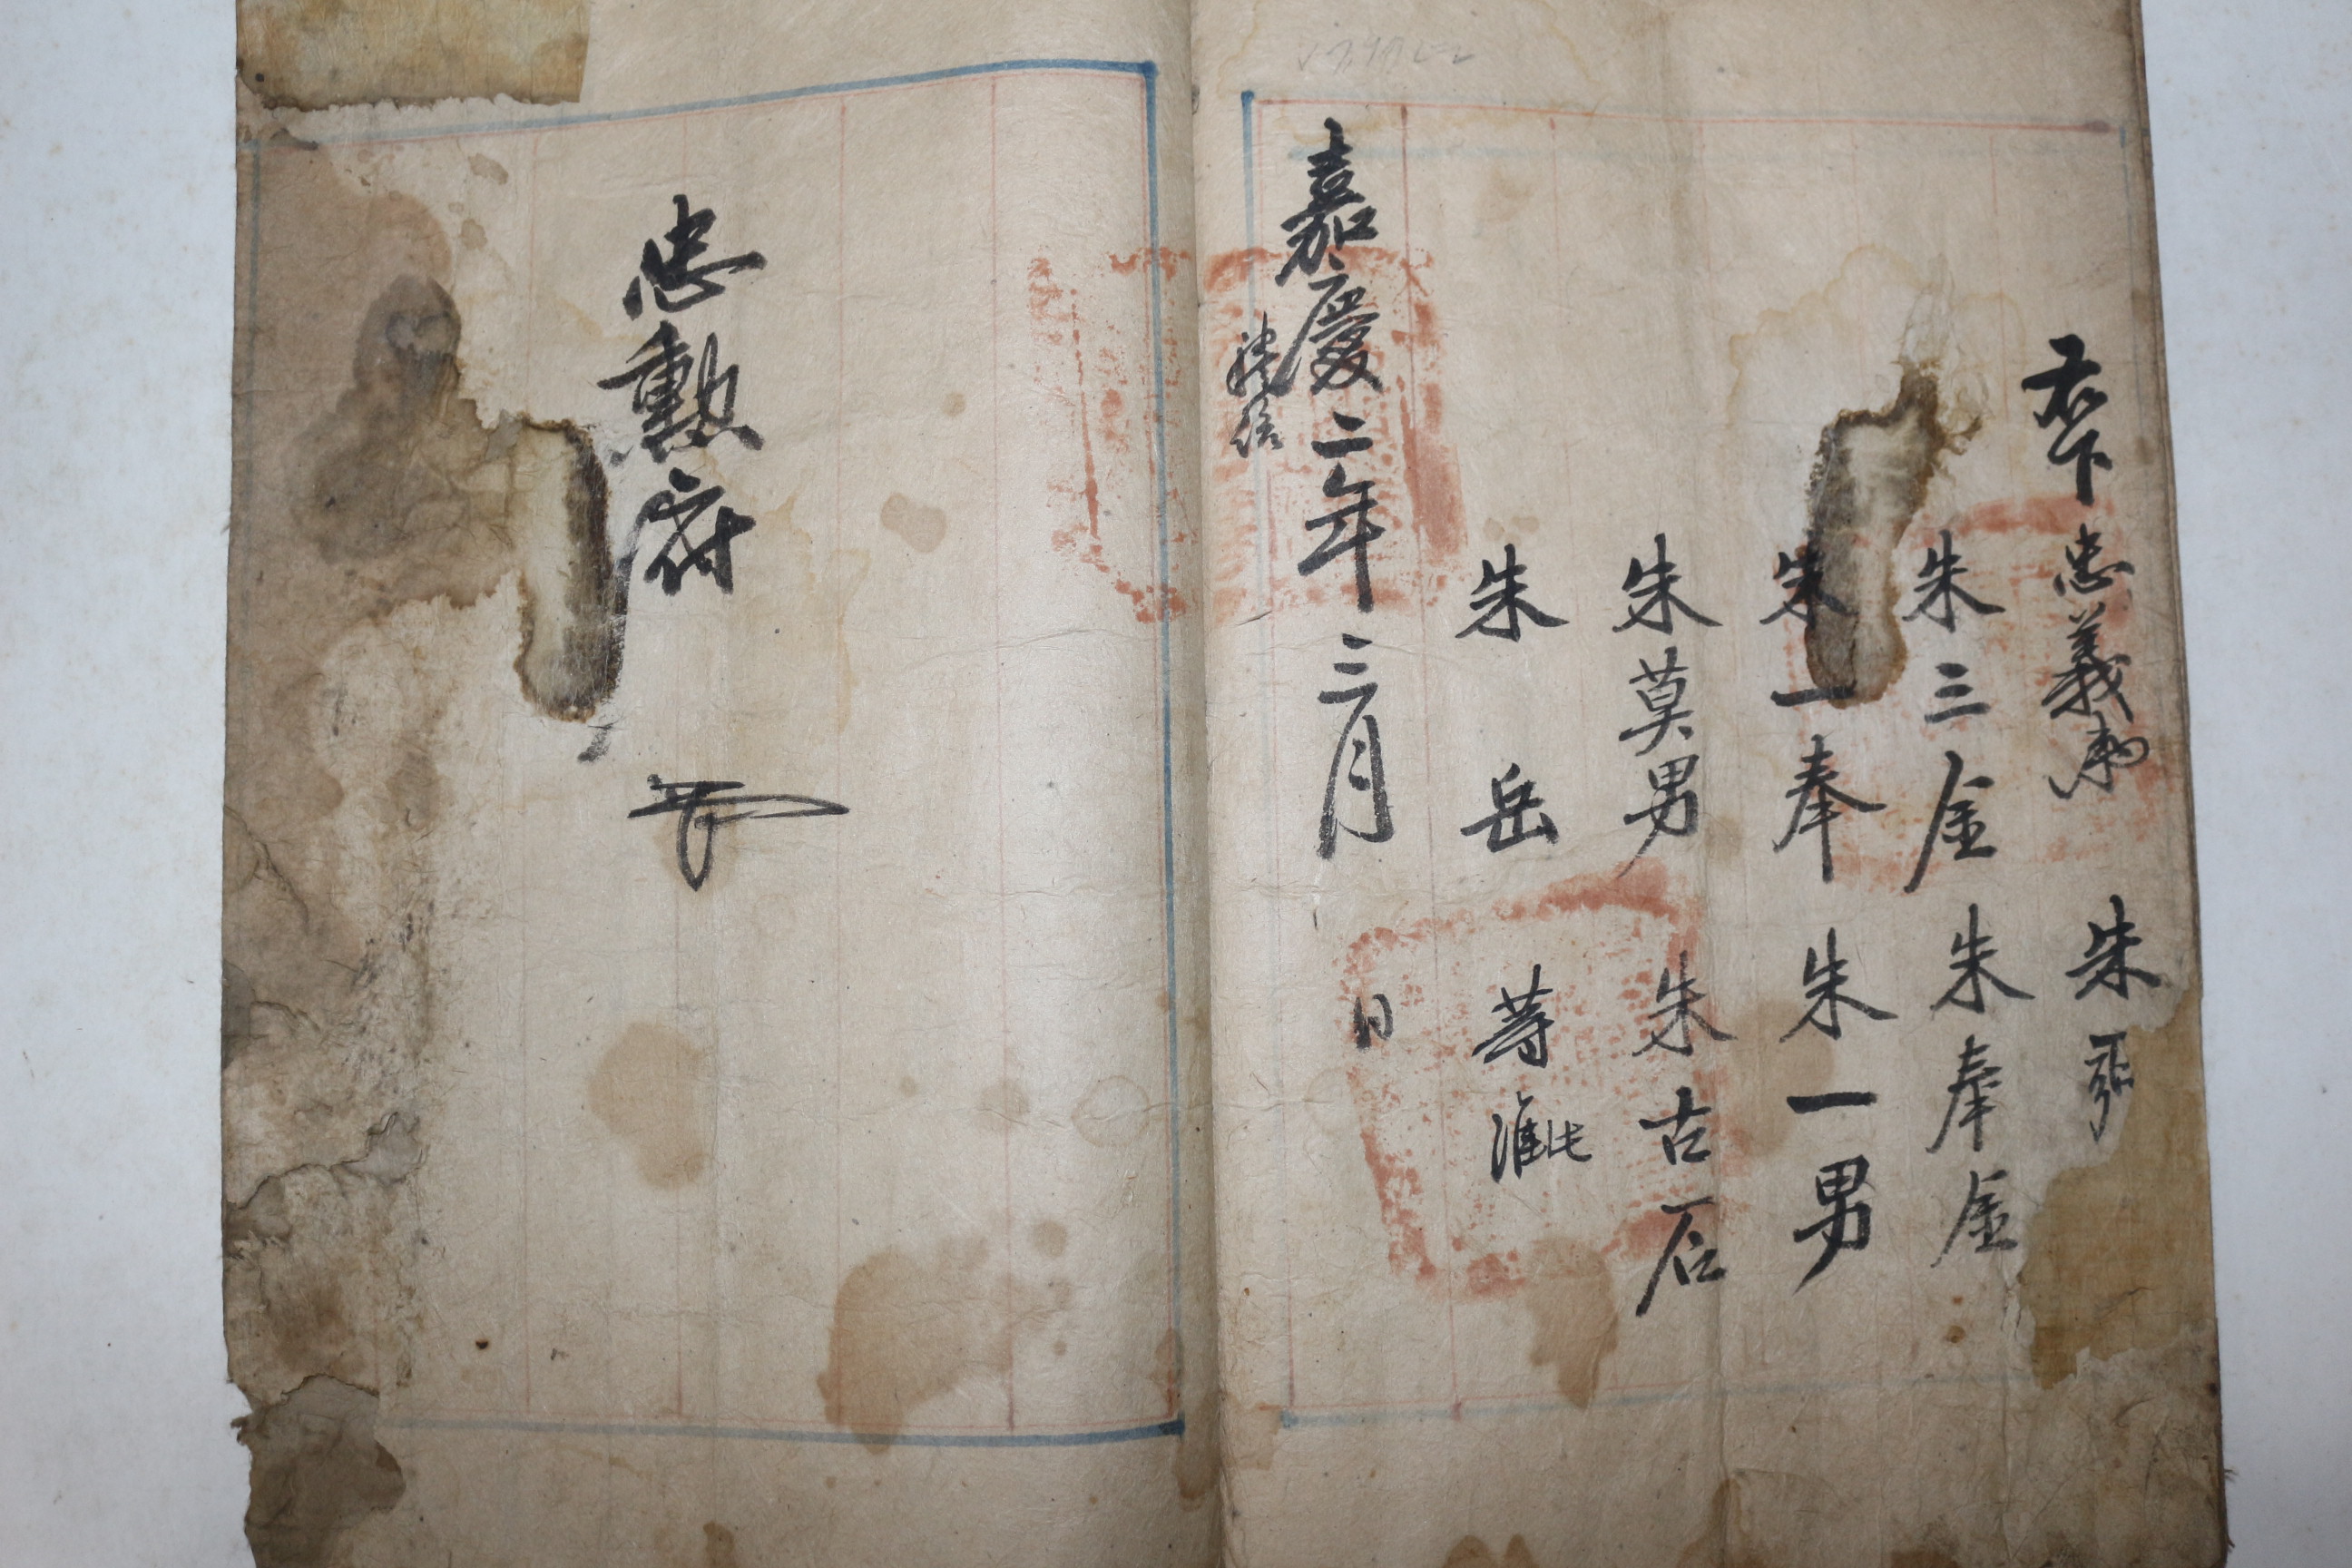 右下 忠義衛 朱
朱三金 朱奉金
朱一奉 朱一男
朱莫男 朱古石
朱岳 等 準此
嘉慶二年三月 日
忠勳府